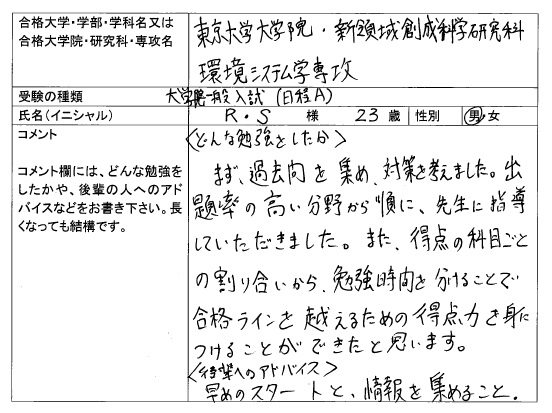 合格大学・学部・学科名又は
合格大学院・研究科・専攻名
東京大学大学院・新領域創成科学研究科
環境システム学専攻
受験の種類
大学院一般入試(日程A)
氏名(イニシャル)
R・S 様 23 歳 性別 男・女
コメント
コメント欄には、どんな勉強を
したかや、後輩の人へのアド
バイスなどをお書き下さい。長
くなっても結構です。
<どんな勉強をしたか>
まず、過去問を集め、対策を考えました。出
題率の高い分野から順に、先生に指導
していただきました。また、得点の科目ごと
の割り合いから、勉強時間を分けることで
合格ラインを越えるための得点力を身に
つけることができたと思います。
<後輩へのアドバイス>
早めのスタートと、情報を集めること。